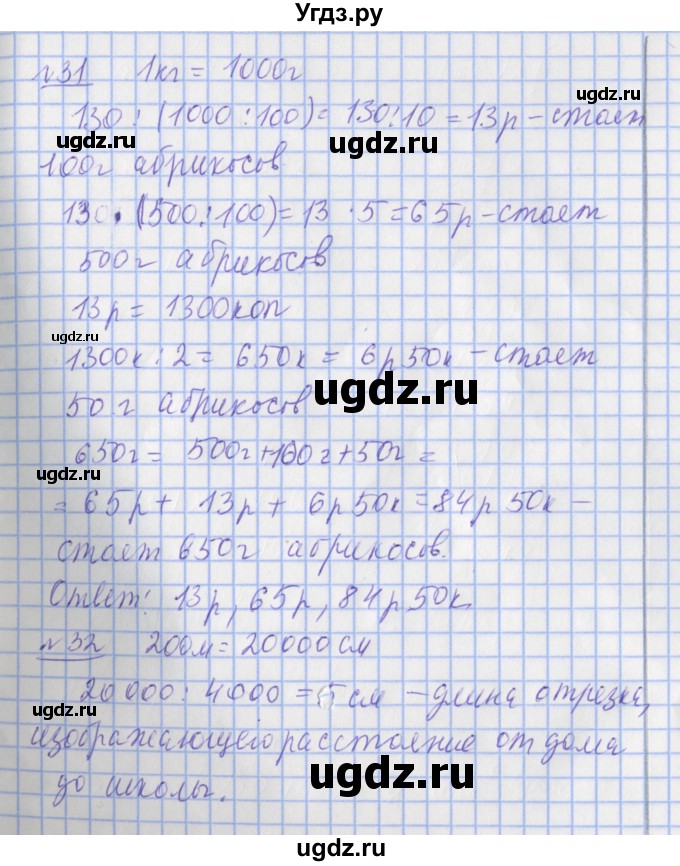 Угдз.ру
№31 1кг = 1000г
ugdz.ru
130 : (1000 : 100) = 130:10 = 13р – стоет
ugdz.ru
100г абрикосов
130. (500:100) = 13 · 5 = 65р – стоет
500г абрикосов
13р = 1300коп
ugdz.ru
1300к : 2 = 650к = 6р 50к – стоет
ugdz.ru
50 г абрикосов
650г = 500г+100г+50г =
ugdz.ru
= 65р + 13р + 6р 50к = 84р 50к –
стоет 650г абрикосов.
Ответ: 13р, 65р, 84р 50к
ugdz.ru
№32 200м = 20000 см
20 000 : 4000 = 5 см – длина отрезка,
ugdz.ru
изображающего расстояние от дома
ugdz.ru
до школы.
ugdz.ru
ugdz.ru